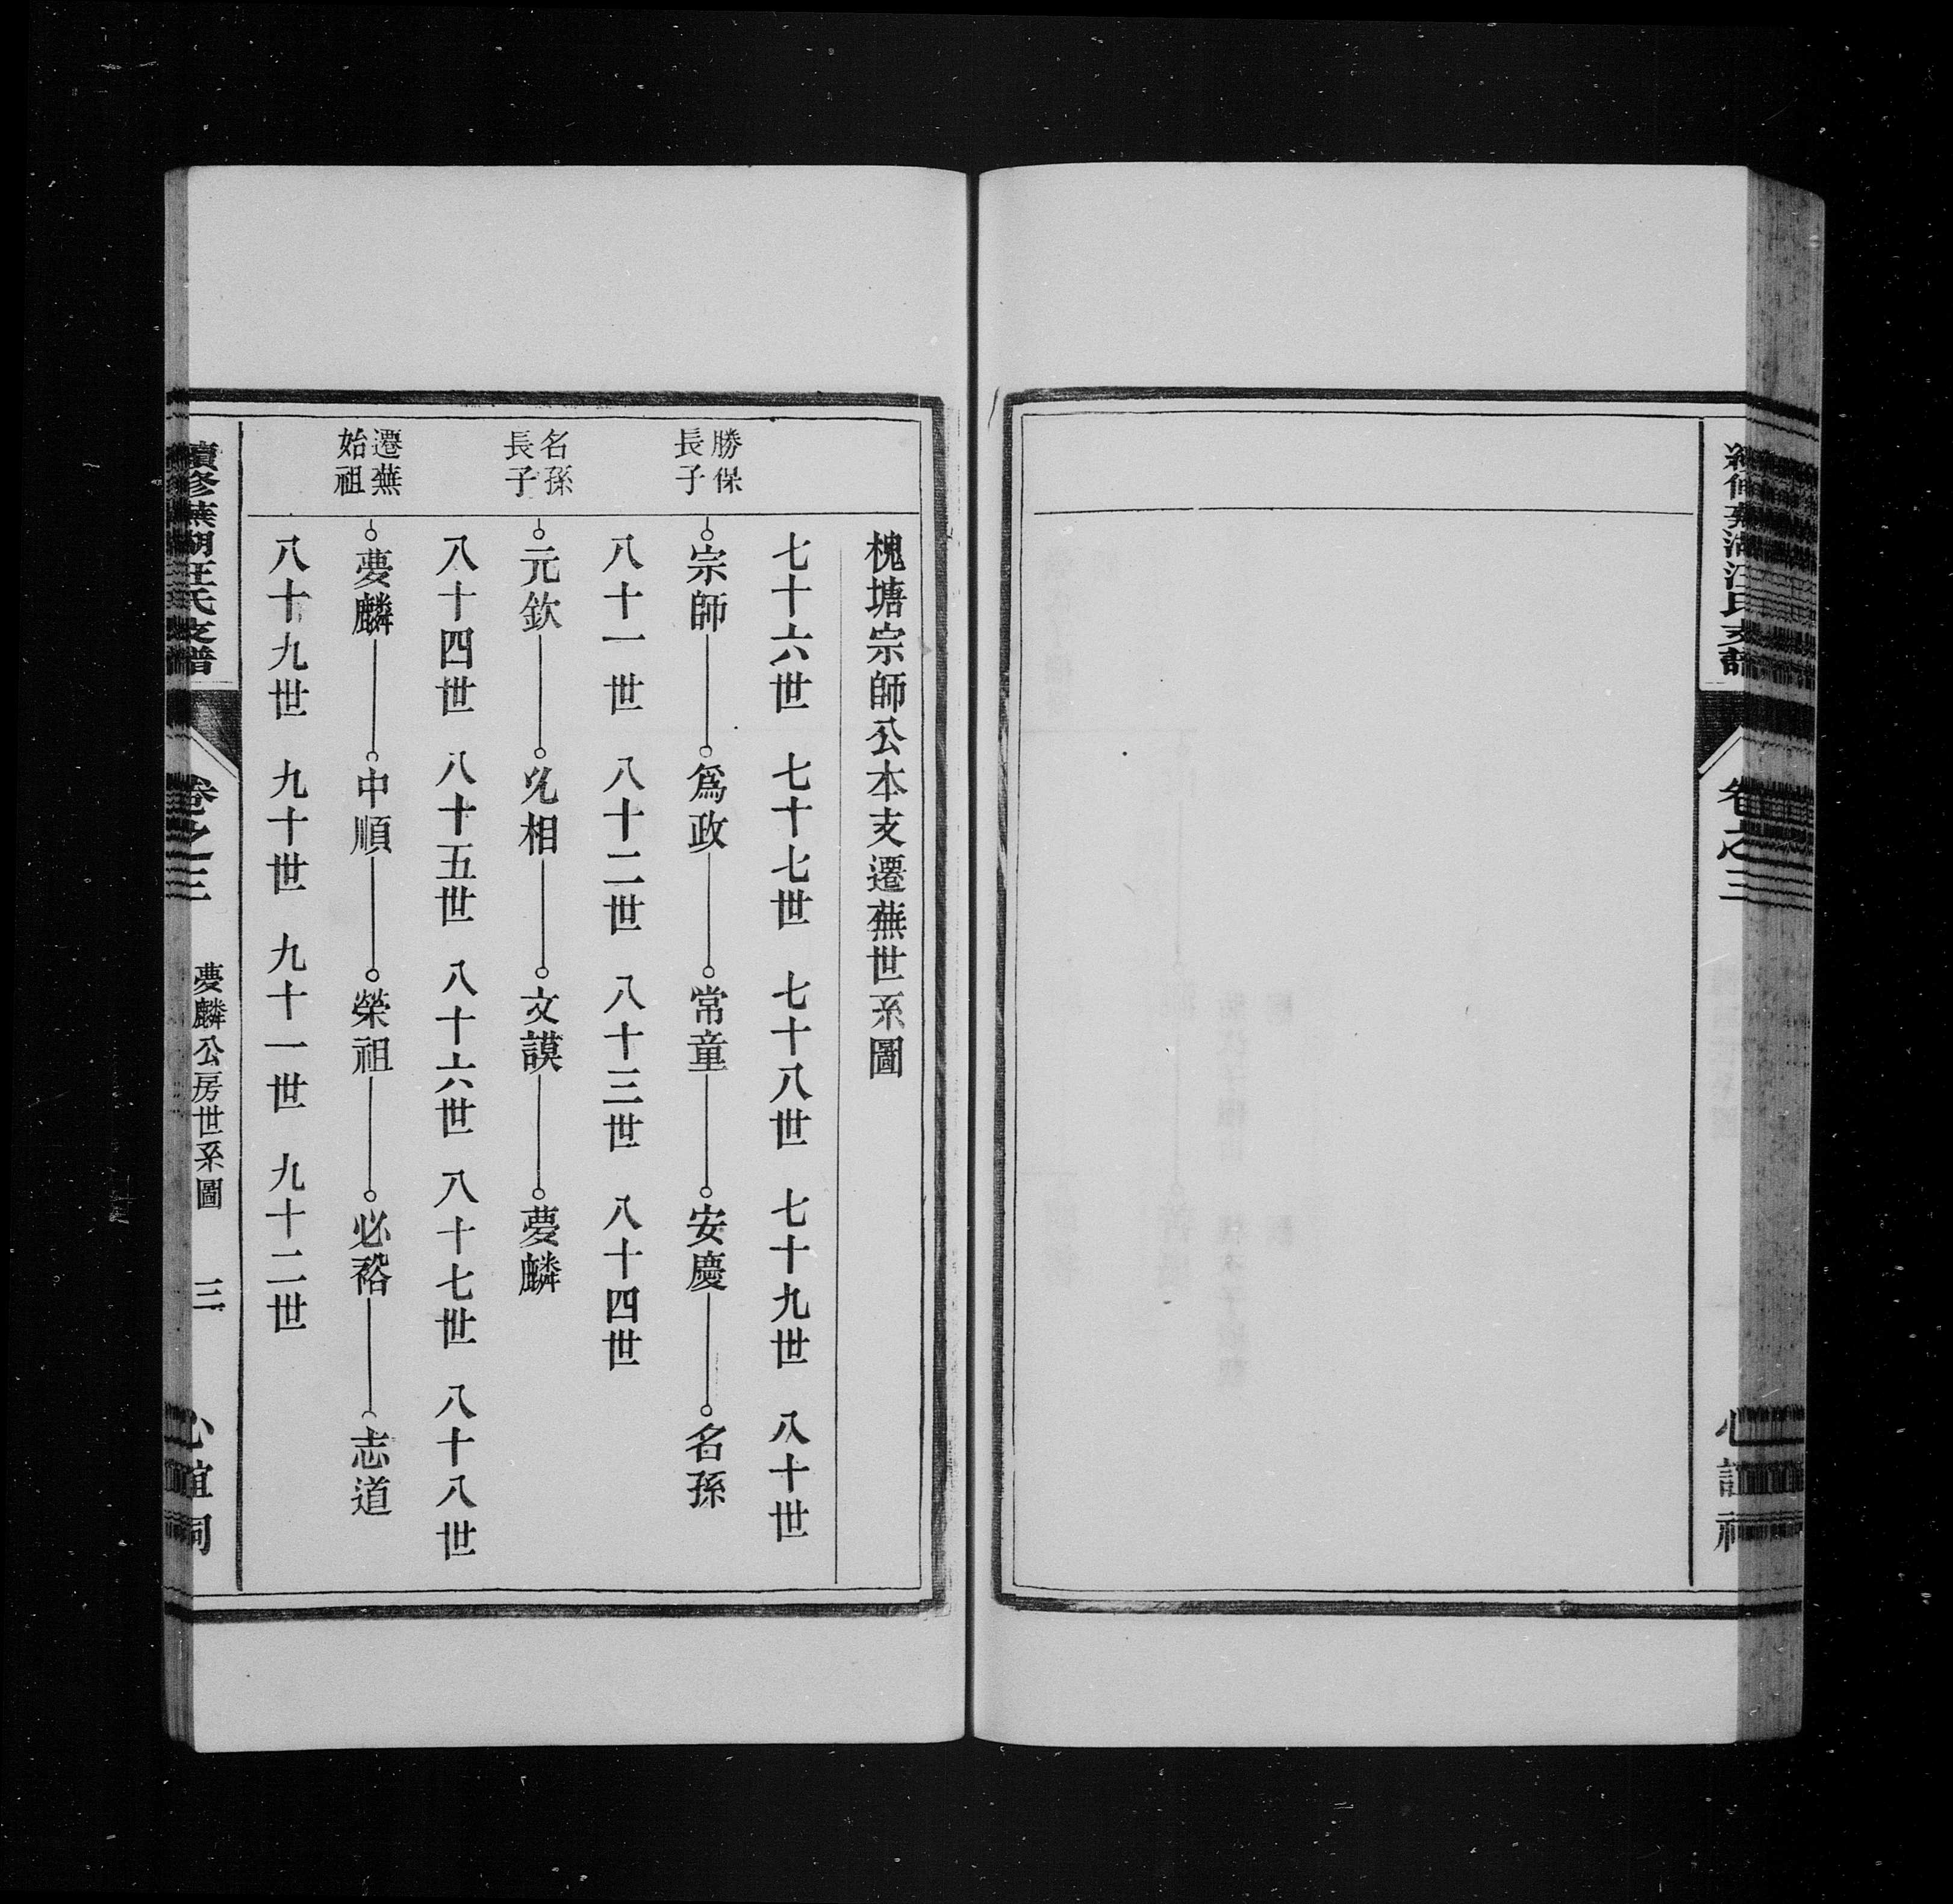 續修蕪湖汪氏支譜
卷之三
心誼祠
槐塘宗師公本支遷蕪世系圖
七十六世　七十七世　七十八世　七十九世　八十世
勝保
長子
宗師　爲政　常童　安慶　名孫
八十一世　八十二世　八十三世　八十四世
名孫
長子
元欽　兆相　文謨　夢麟
八十四世　八十五世　八十六世　八十七世　八十八世
遷蕪
始祖
夢麟　中順　榮祖　必裕　志道
八十九世　九十世　九十一世　九十二世
續修蕪湖汪氏支譜
卷之三
夢麟公房世系圖
三
心誼祠